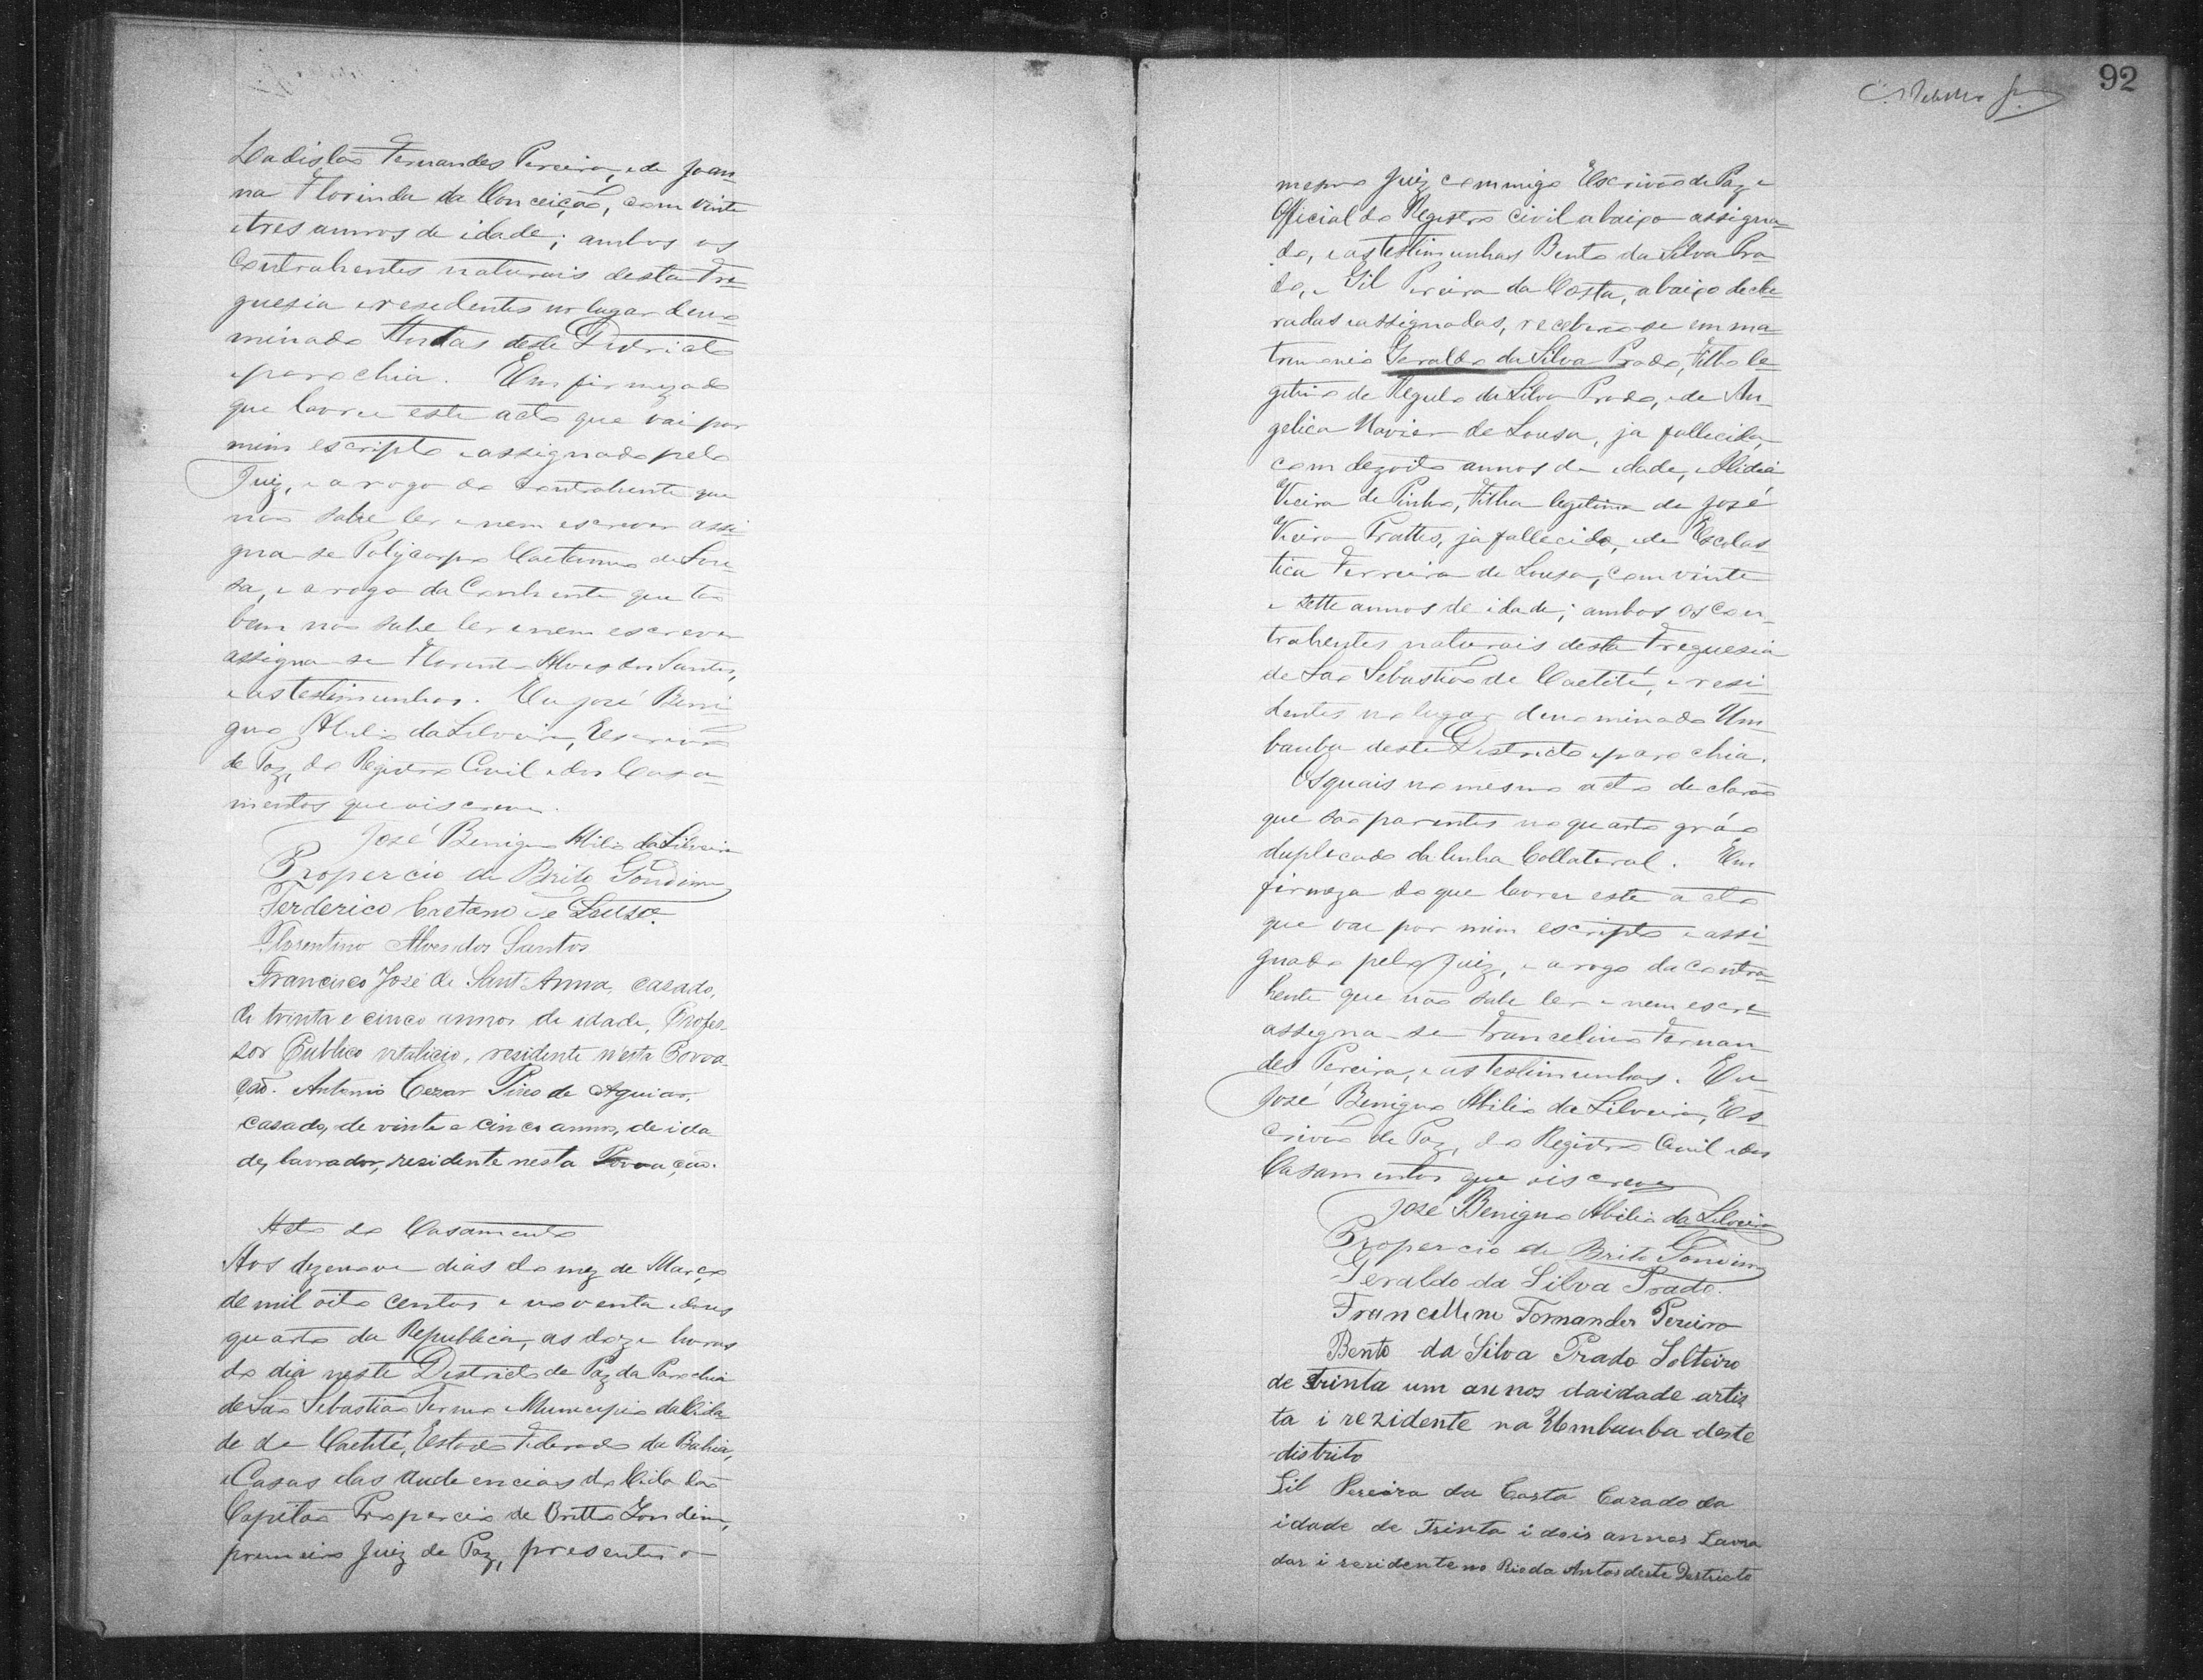 Ladislao Fernandes Pereira, e de Joan-
na Florinda da Conceição, com vinte
e tres annos de idade; ambos os
Contrahentes naturais desta Fre-
guesia e resedentes no lugar deno-
minado Antas deste Districto
e parochia. Em firmeza do
que lavrei este acto que vai por
mim escripto e assignado pelo
Juiz, e a rogo do contrahente que
não sabe ler e nem escrever assi-
gna-se Polycarpo Caetano de Sou
sa, e a rogo da Contrhente que tão
bem não sabe ler e nem escrever
assigna-se Florentino Alves dos Santos,
e as testimunhas. Eu José Beni-
gno Abilio da Silveira, Escrivão
de Paz, do Registro Civil e dos Casa-
mentos que o iscrevi.
José Benigno Abilio da Silveira
Propercio de Brito Gondim
Ferderico Caetano de Sousa
Florentino Alves dos Santos
Francisco José de Sant'Anna, casado,
de trinta e cinco annos de idade, Profes-
sor Publico vitalicio, residente n'esta Povoa-
ção. Antonio Cezar Pires de Aguiar,
casado, de vinte e cinco annos, de ida
de, lavrador, residente nesta Povoação.
Acto do Casamento
Aos dezenove dias do mez de Março
de mil oito centos e noventa e dous
quarto da Republica, as doze horas
do dia neste Districto de Paz da Parochia
de São Sebastião Termo e Municipio da Cida
de de Caetité, Estado Federado da Bahia,
e Casas das Audeencias do Cidadão
Capitão Propercio de Britto Gondim,
premeiro Juiz de Paz, presentes o
92
mesmo Juiz commigo Escrivão de Paz e
Official do Registro civil abaixo assigna-
do, e as testimunhas Bento da Silva Pra
do, e Gil Pereira da Costa, abaixo decla-
radas e assignadas, receberão-se em ma-
trimonio Geraldo da Silva Prado, Filho le-
gitimo de Regulo da Silva Prado, e de An-
gelica Xavier de Sousa, ja fallecida,
com dezoito annos de idade, e Alidia
Vieira de Pinho, Filha legitima de José
Vieira Prattes, ja fallecido, e de Escolas
tica Ferreira de Sousa, com vinte
e sette annos de idade; ambos os con-
trahentes naturais desta Freguesia
de São Sebastião de Caetité, e resi-
dentes no lugar denominado Um-
bauba deste Districto e parochia.
Os quais no mesmo acto declarão
que são parentes no quarto gráo
duplecado da linha Collateral. Em
firmeza do que lavrei este acto
que vae por mim escripto e assi-
gnado pelo Juiz, e a rogo da contra-
hente que não sabe ler e nem escre
assegna-se Francelino Fernan
des Pereira, e as testimunhas. Eu
José Benigno Abilio da Silveira, Es-
crivão de Paz, do Registro Civil e dos
Casamentos que o iscrevi
José Benigno Abilio da Silveira
Propercio de Brito Gondim
Geraldo da Silva Prado.
Francellino Fornander Pereira
Bento da Silva Prado Solteiro
de trinta um annos daidade artis
ta i rezidente na Umbauba deste
distrito
Gil Pereira da Costa Cazado da
idade de Trinta i dois annos Lavra
dor i rezidente no Rio da Antas deste Destricto